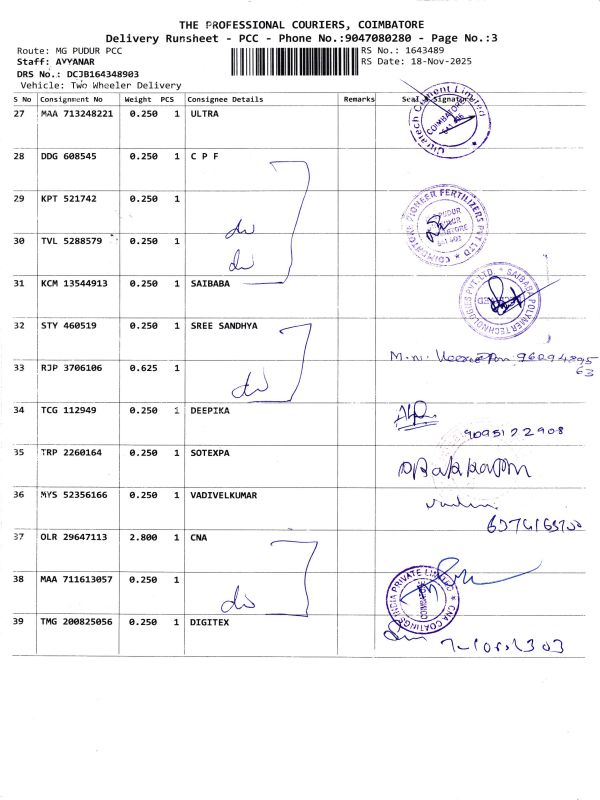 THE PROFESSIONAL COURIERS, COIMBATORE
Delivery Runsheet - PCC - Phone No.:9047080280 - Page No.:3
Route: MG PUDUR PCC
RS No.: 1643489
Staff: AYYANAR
RS Date: 18-Nov-2025
DRS No.: DCJB164348903
Vehicle: Two Wheeler Delivery
S No Consignment No Weight PCS Consignee Details Remarks Seal & Signature
27 MAA 713248221 0.250 1 ULTRA
Ultratech Cement Limited
COIMBATORE
28 DDG 608545 0.250 1 C P F
29 KPT 521742 0.250 1
COIMBATORE PIONEER FERTILIZERS PVT LTD
30 TVL 5288579 0.250 1
do
do
31 KCM 13544913 0.250 1 SAIBABA
SAIBABA POLYMER TECHNOLOGIES PVT. LTD.
32 STY 460519 0.250 1 SREE SANDHYA
33 RJP 3706106 0.625 1
do
34 TCG 112949 0.250 1 DEEPIKA
9095122908
35 TRP 2260164 0.250 1 SOTEXPA
36 MYS 52356166 0.250 1 VADIVELKUMAR
37 OLR 29647113 2.800 1 CNA
38 MAA 711613057 0.250 1
do
CNA COATINGS INDIA PRIVATE LIMITED
39 TMG 200825056 0.250 1 DIGITEX